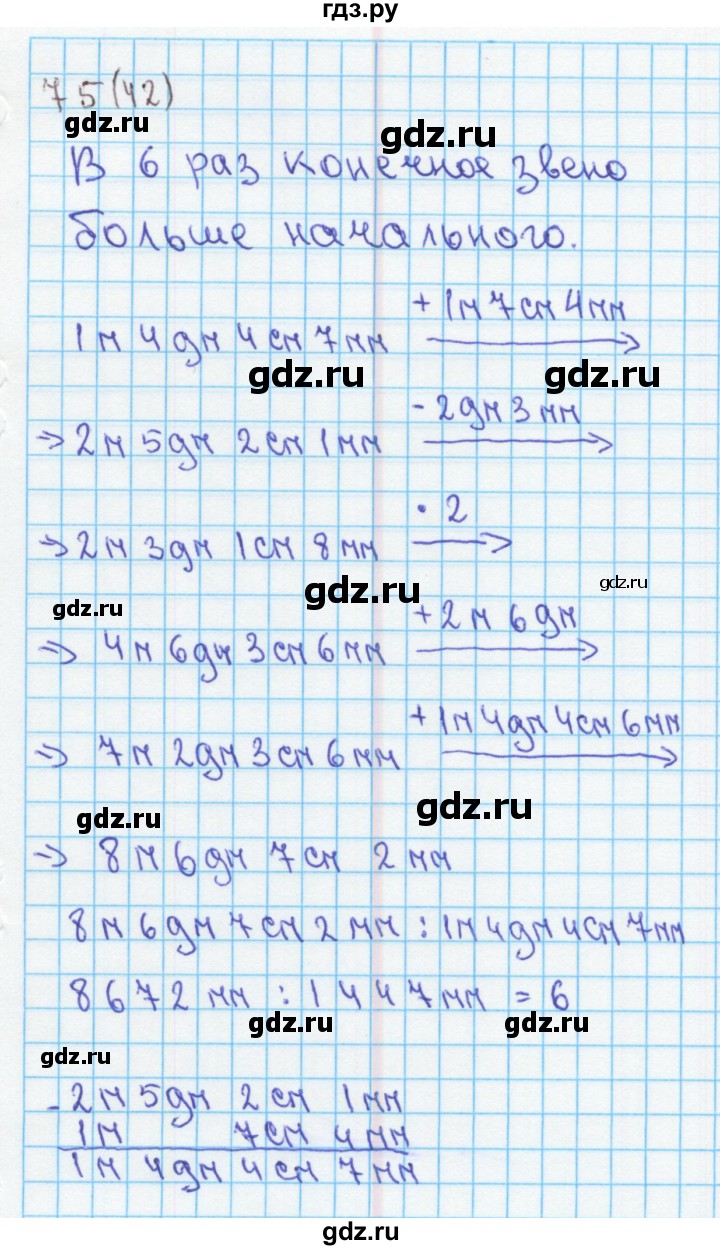 гдз.ру
75(42)
gdz.ru
gdz.ru
В 6 раз конечное звено
больше начального.
1м 4дм 4см 7мм + 1м 7см 4мм
gdz.ru
gdz.ru
→ 2м 5дм 2см 1мм - 2дм 3мм
→ 2м 3дм 1см 8мм · 2
gdz.ru
gdz.ru
gdz.ru
→ 4м 6дм 3см 6мм + 2м 6дм
→ 7м 2дм 3см 6мм + 1м 4дм 4см 6мм
gdz.ru
gdz.ru
→ 8м 6дм 7см 2мм
8м 6дм 7см 2мм : 1м 4дм 4см 7мм
8672мм : 1447мм = 6
gdz.ru
gdz.ru
gdz.ru
- 2м 5дм 2см 1мм
1м 7см 4мм
1м 4дм 4см 7мм
gdz.ru